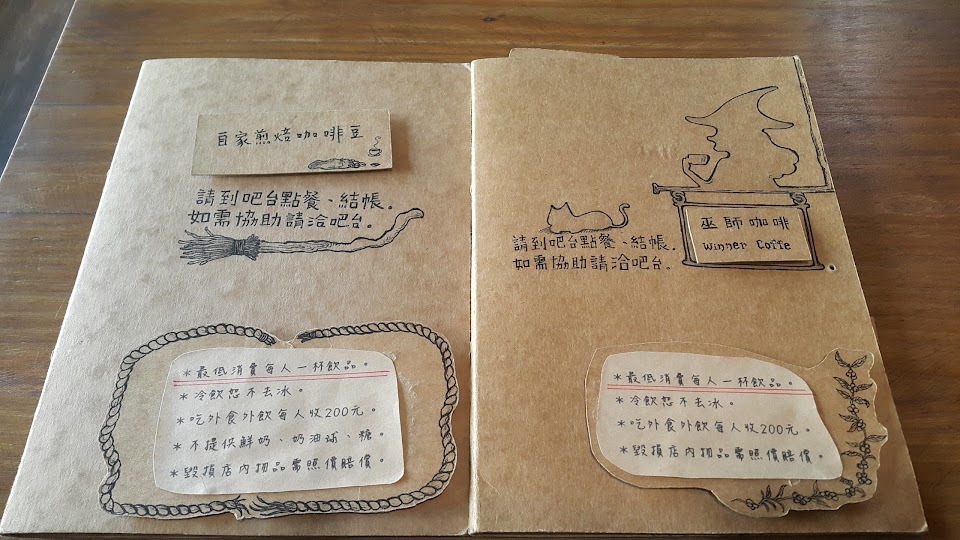 自家煎焙咖啡豆
請到吧台點餐、結帳。
如需協助請洽吧台。
*最低消費每人一杯飲品。
*冷飲恕不去冰。
*吃外食外飲每人收200元。
*不提供鮮奶、奶油球、糖。
*毀損店內物品需照價賠償。
巫師咖啡
Winner Coffe
請到吧台點餐、結帳。
如需協助請洽吧台。
*最低消費每人一杯飲品。
*冷飲恕不去冰。
*吃外食外飲每人收200元。
*毀損店內物品需照價賠償。